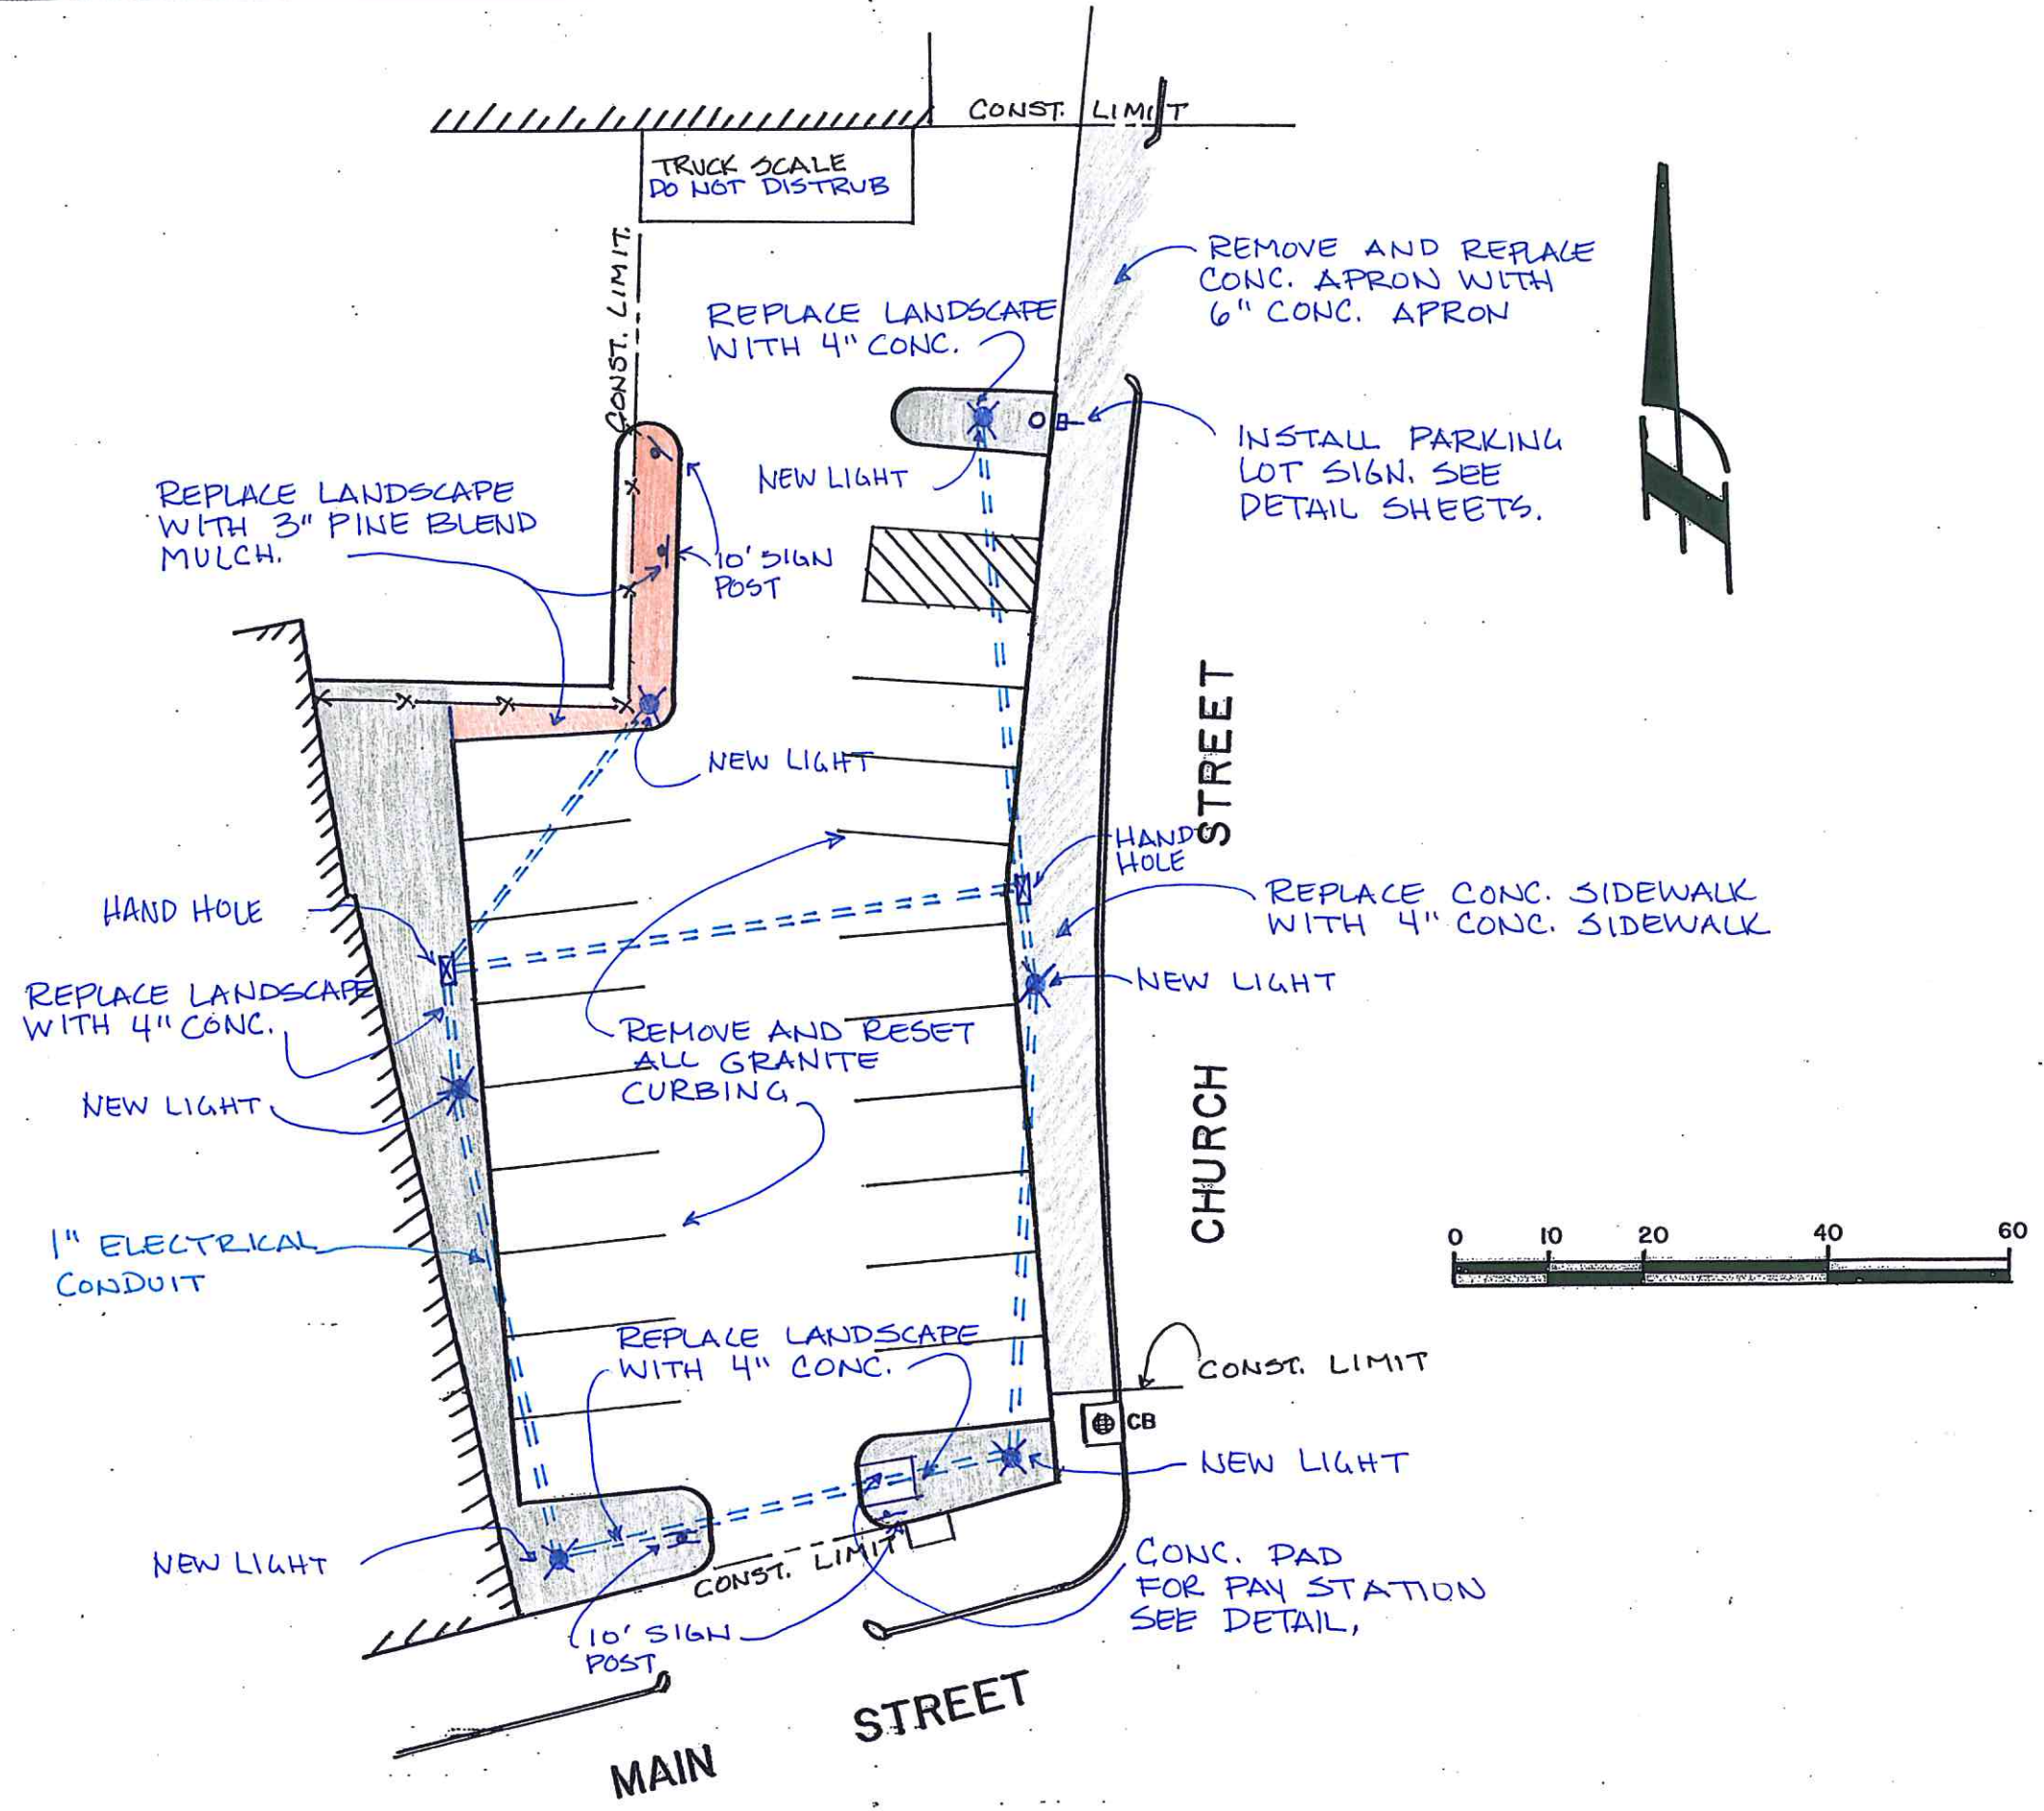 CONST. LIMIT
TRUCK SCALE
DO NOT DISTRUB
CONST. LIMIT.
REMOVE AND REPLACE
CONC. APRON WITH
6" CONC. APRON
REPLACE LANDSCAPE
WITH 4" CONC.
INSTALL PARKING
LOT SIGN. SEE
DETAIL SHEETS.
NEW LIGHT
REPLACE LANDSCAPE
WITH 3" PINE BLEND
MULCH.
10' SIGN
POST
NEW LIGHT
STREET
HAND
HOLE
HAND HOLE
REPLACE CONC. SIDEWALK
WITH 4" CONC. SIDEWALK
NEW LIGHT
REPLACE LANDSCAPE
WITH 4" CONC.
REMOVE AND RESET
ALL GRANITE
CURBING
NEW LIGHT
CHURCH
1" ELECTRICAL
CONDUIT
0 10 20 40 60
REPLACE LANDSCAPE
WITH 4" CONC.
CONST. LIMIT
CB
NEW LIGHT
NEW LIGHT
CONST. LIMIT
CONC. PAD
FOR PAY STATION
SEE DETAIL,
10' SIGN
POST
MAIN STREET